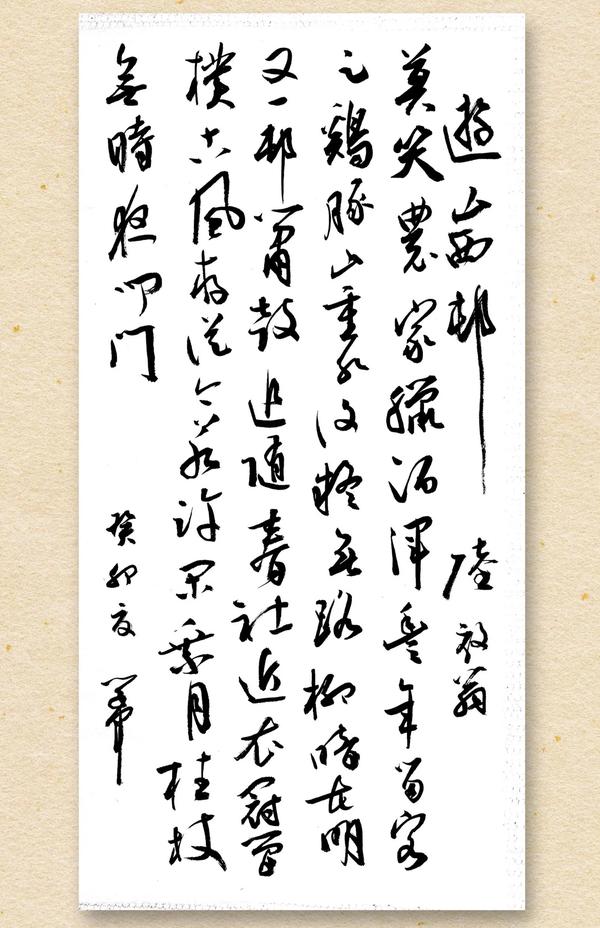 遊山西邨 陸放翁
莫笑農家臘酒渾豐年留客
足鷄豚山重水複疑無路柳暗花明
又一邨簫鼓追隨春社近衣冠簡
樸古風存從今若許閑乘月桂杖
無時夜叩门
癸卯夏